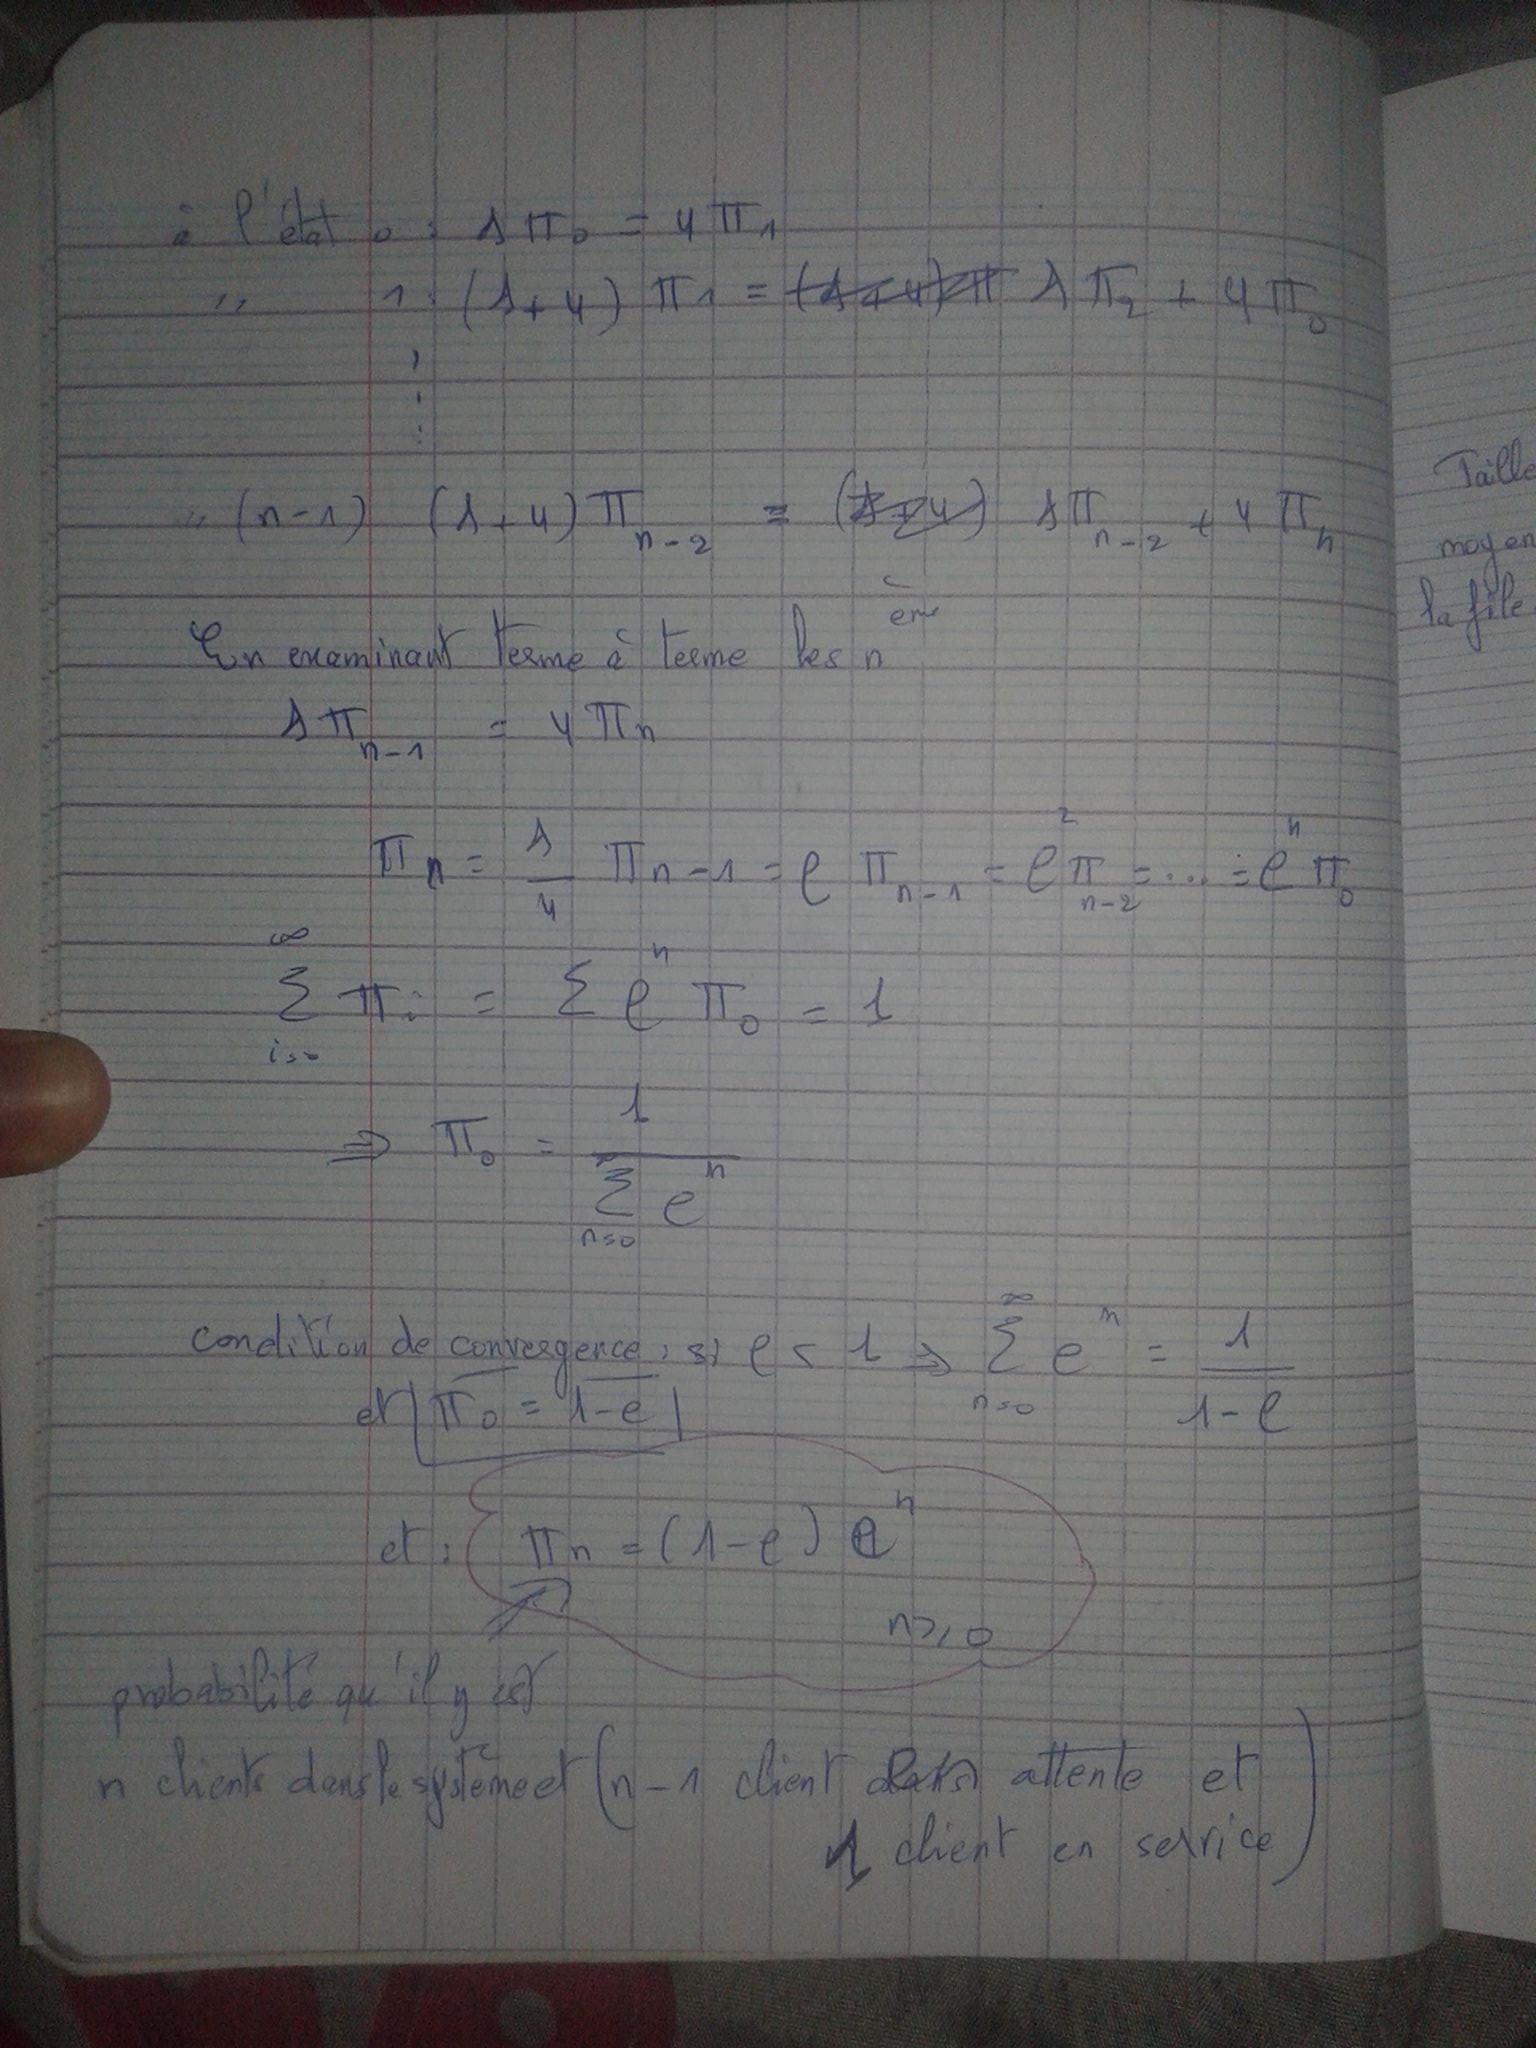 à l'état 0 : λ π₀ = μ π₁
" 1 : (λ + μ) π1 = λ π₂ + μ π₀
" (n-1) (λ + μ) π_{n-2} = λ π_{n-2} + μ π_n
En examinant terme à terme les n ème
λ π_{n-1} = μ π_n
π_n = λ/μ π_{n-1} = ρ π_{n-1} = ρ² π_{n-2} = ... = ρⁿ π₀
∑_{i=0}^{∞} π_i = ∑ ρⁿ π₀ = 1
⇒ π₀ = 1 / ∑_{n=0}^{∞} ρⁿ
condition de convergence : si ρ < 1 ⇒ ∑_{n=0}^{∞} ρⁿ = 1/(1-ρ)
et π₀ = 1-ρ
et : π_n = (1-ρ) ρⁿ
n ≥ 0
probabilité qu'il y est
n clients dans le système et (n-1 client attente et
1 client en service)
Taille
moyen
la file